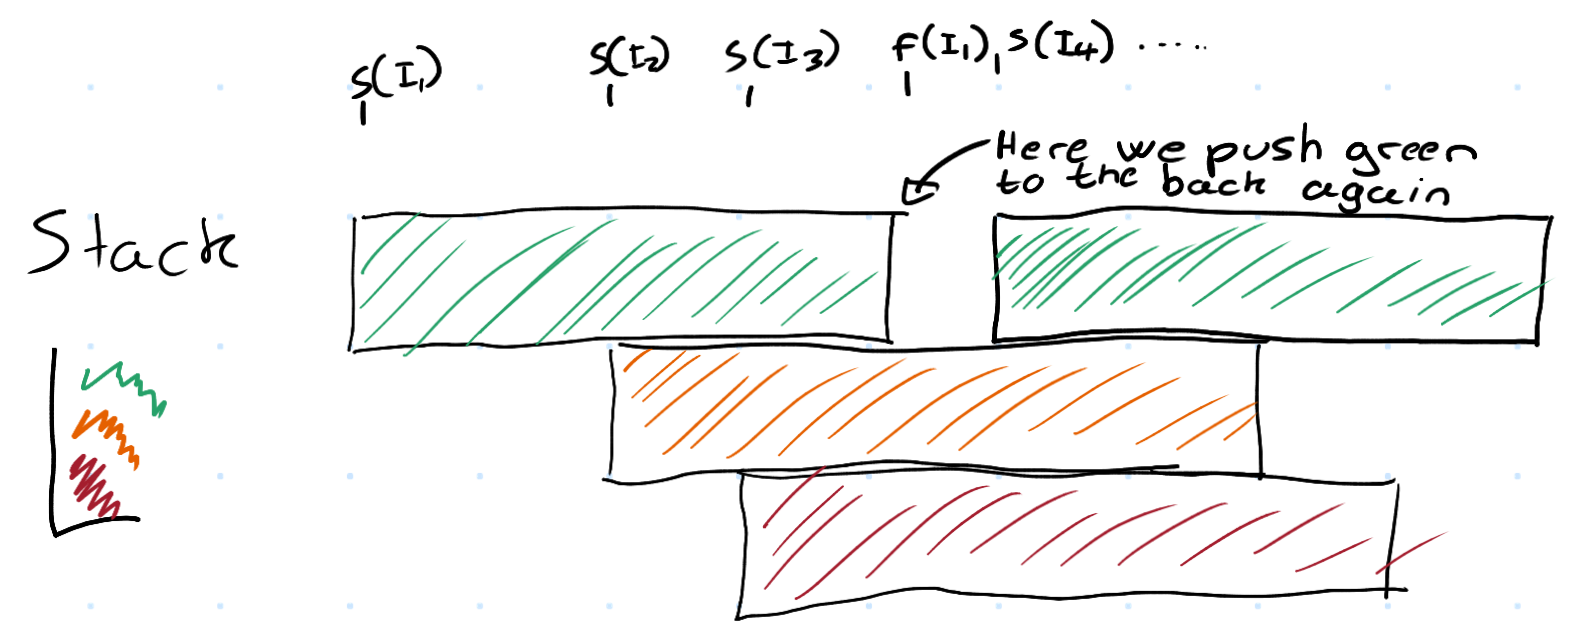 s(I₁) s(I₂) s(I₃) f(I₁) s(I₄) .....
Here we push green
to the back again
Stack